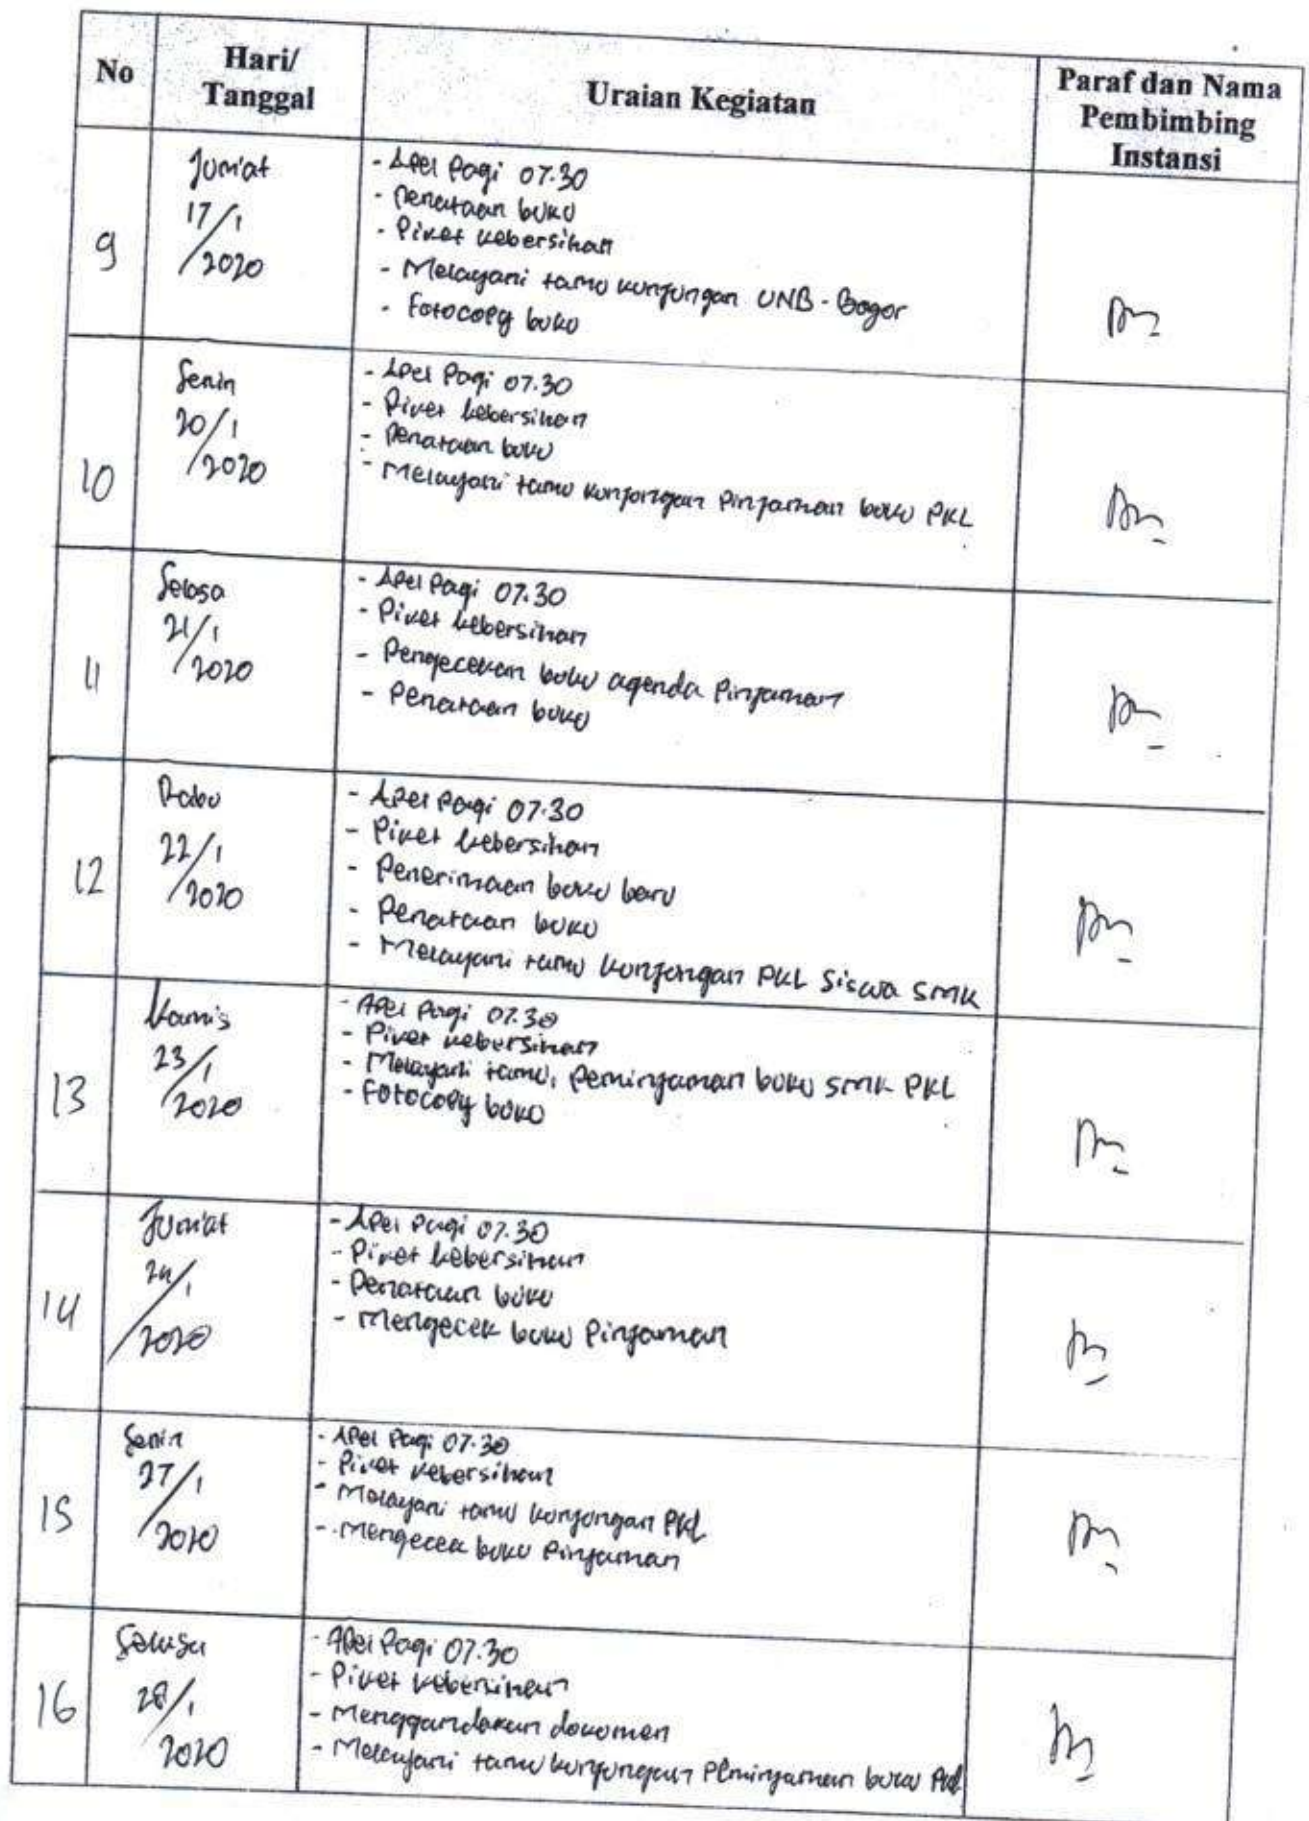 No
Hari/
Tanggal
Uraian Kegiatan
Paraf dan Nama
Pembimbing
Instansi
9
Jum'at
17/1
/2020
- Apel Pagi 07.30
- Penataan buku
- Piket kebersihan
- Melayani tamu kunjungan UNB - Bogor
- Fotocopy buku
10
Senin
20/1
/2020
- Apel Pagi 07.30
- Piket kebersihan
- Penataan buku
- Melayani tamu kunjungan Pinjaman buku PKL
11
Selasa
21/1
/2020
- Apel Pagi 07.30
- Piket kebersihan
- Pengecekan buku agenda Pinjaman
- Penataan buku
12
Rabu
22/1
/2020
- Apel Pagi 07.30
- Piket kebersihan
- Penerimaan buku baru
- Penataan buku
- Melayani tamu kunjungan PKL Siswa SMK
13
Kamis
23/1
/2020
- Apel Pagi 07.30
- Piket kebersihan
- Melayani tamu, peminjaman buku SMK PKL
- Fotocopy buku
14
Jum'at
24/1
/2020
- Apel Pagi 07.30
- Piket kebersihan
- Penataan buku
- Mengecek buku Pinjaman
15
Senin
27/1
/2020
- Apel Pagi 07.30
- Piket kebersihan
- Melayani tamu kunjungan PKL
- Mengecek buku Pinjaman
16
Selasa
28/1
/2020
- Apel Pagi 07.30
- Piket kebersihan
- Menggandakan dokumen
- Melayani tamu kunjungan Peminjaman buku PKL